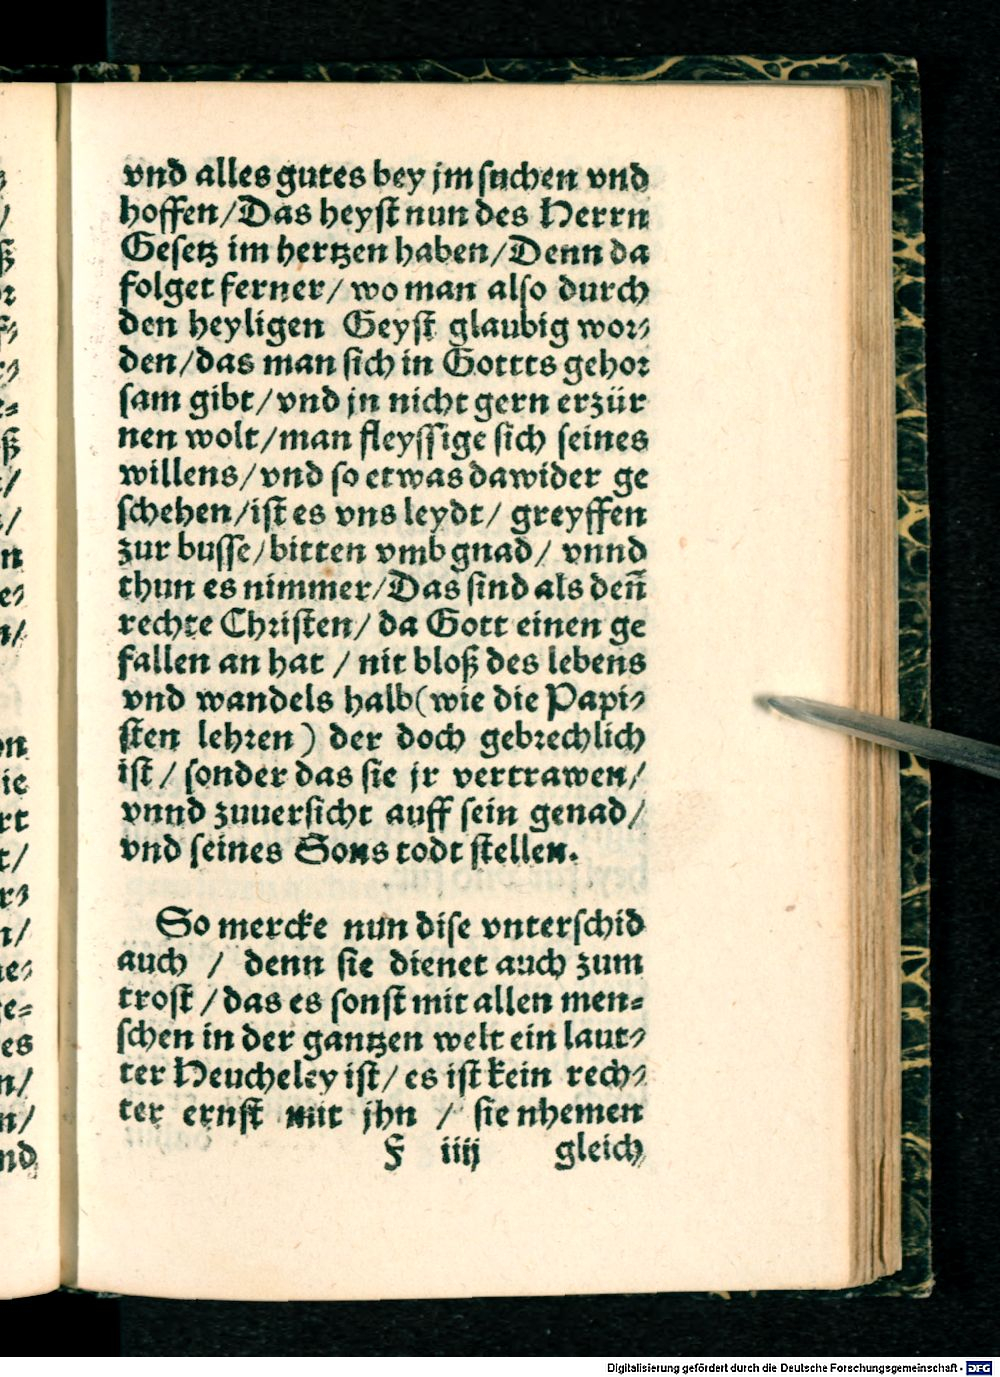 vnd alles gutes bey jm suchen vnd
hoffen/Das heyst nun des Herrn
Gesetz im hertzen haben/Denn da
folget ferner/ wo man also durch
den heyligen Geyst glaubig wor-
den/das man sich in Gottts gehor
sam gibt/vnd jn nicht gern erzür
nen wolt/man fleyssige sich seines
willens/vnd so etwas dawider ge
schehen/ist es vns leydt/ greyffen
zur busse/bitten vmb gnad/ vnnd
thun es nimmer/Das sind als deñ
rechte Christen/ da Gott einen ge
fallen an hat / nit bloß des lebens
vnd wandels halb(wie die Papi-
sten lehren) der doch gebrechlich
ist/ sonder das sie jr vertrawen/
vnnd zuuersicht auff sein genad/
vnd seines Sons todt stellen.
So mercke nun dise vnterschid
auch / denn sie dienet auch zum
trost/das es sonst mit allen men-
schen in der gantzen welt ein laut-
ter Heucheley ist/ es ist kein rech-
ter ernst mit jhn / sie nhemen
F iiij gleich
Digitalisierung gefördert durch die Deutsche Forschungsgemeinschaft - DFG